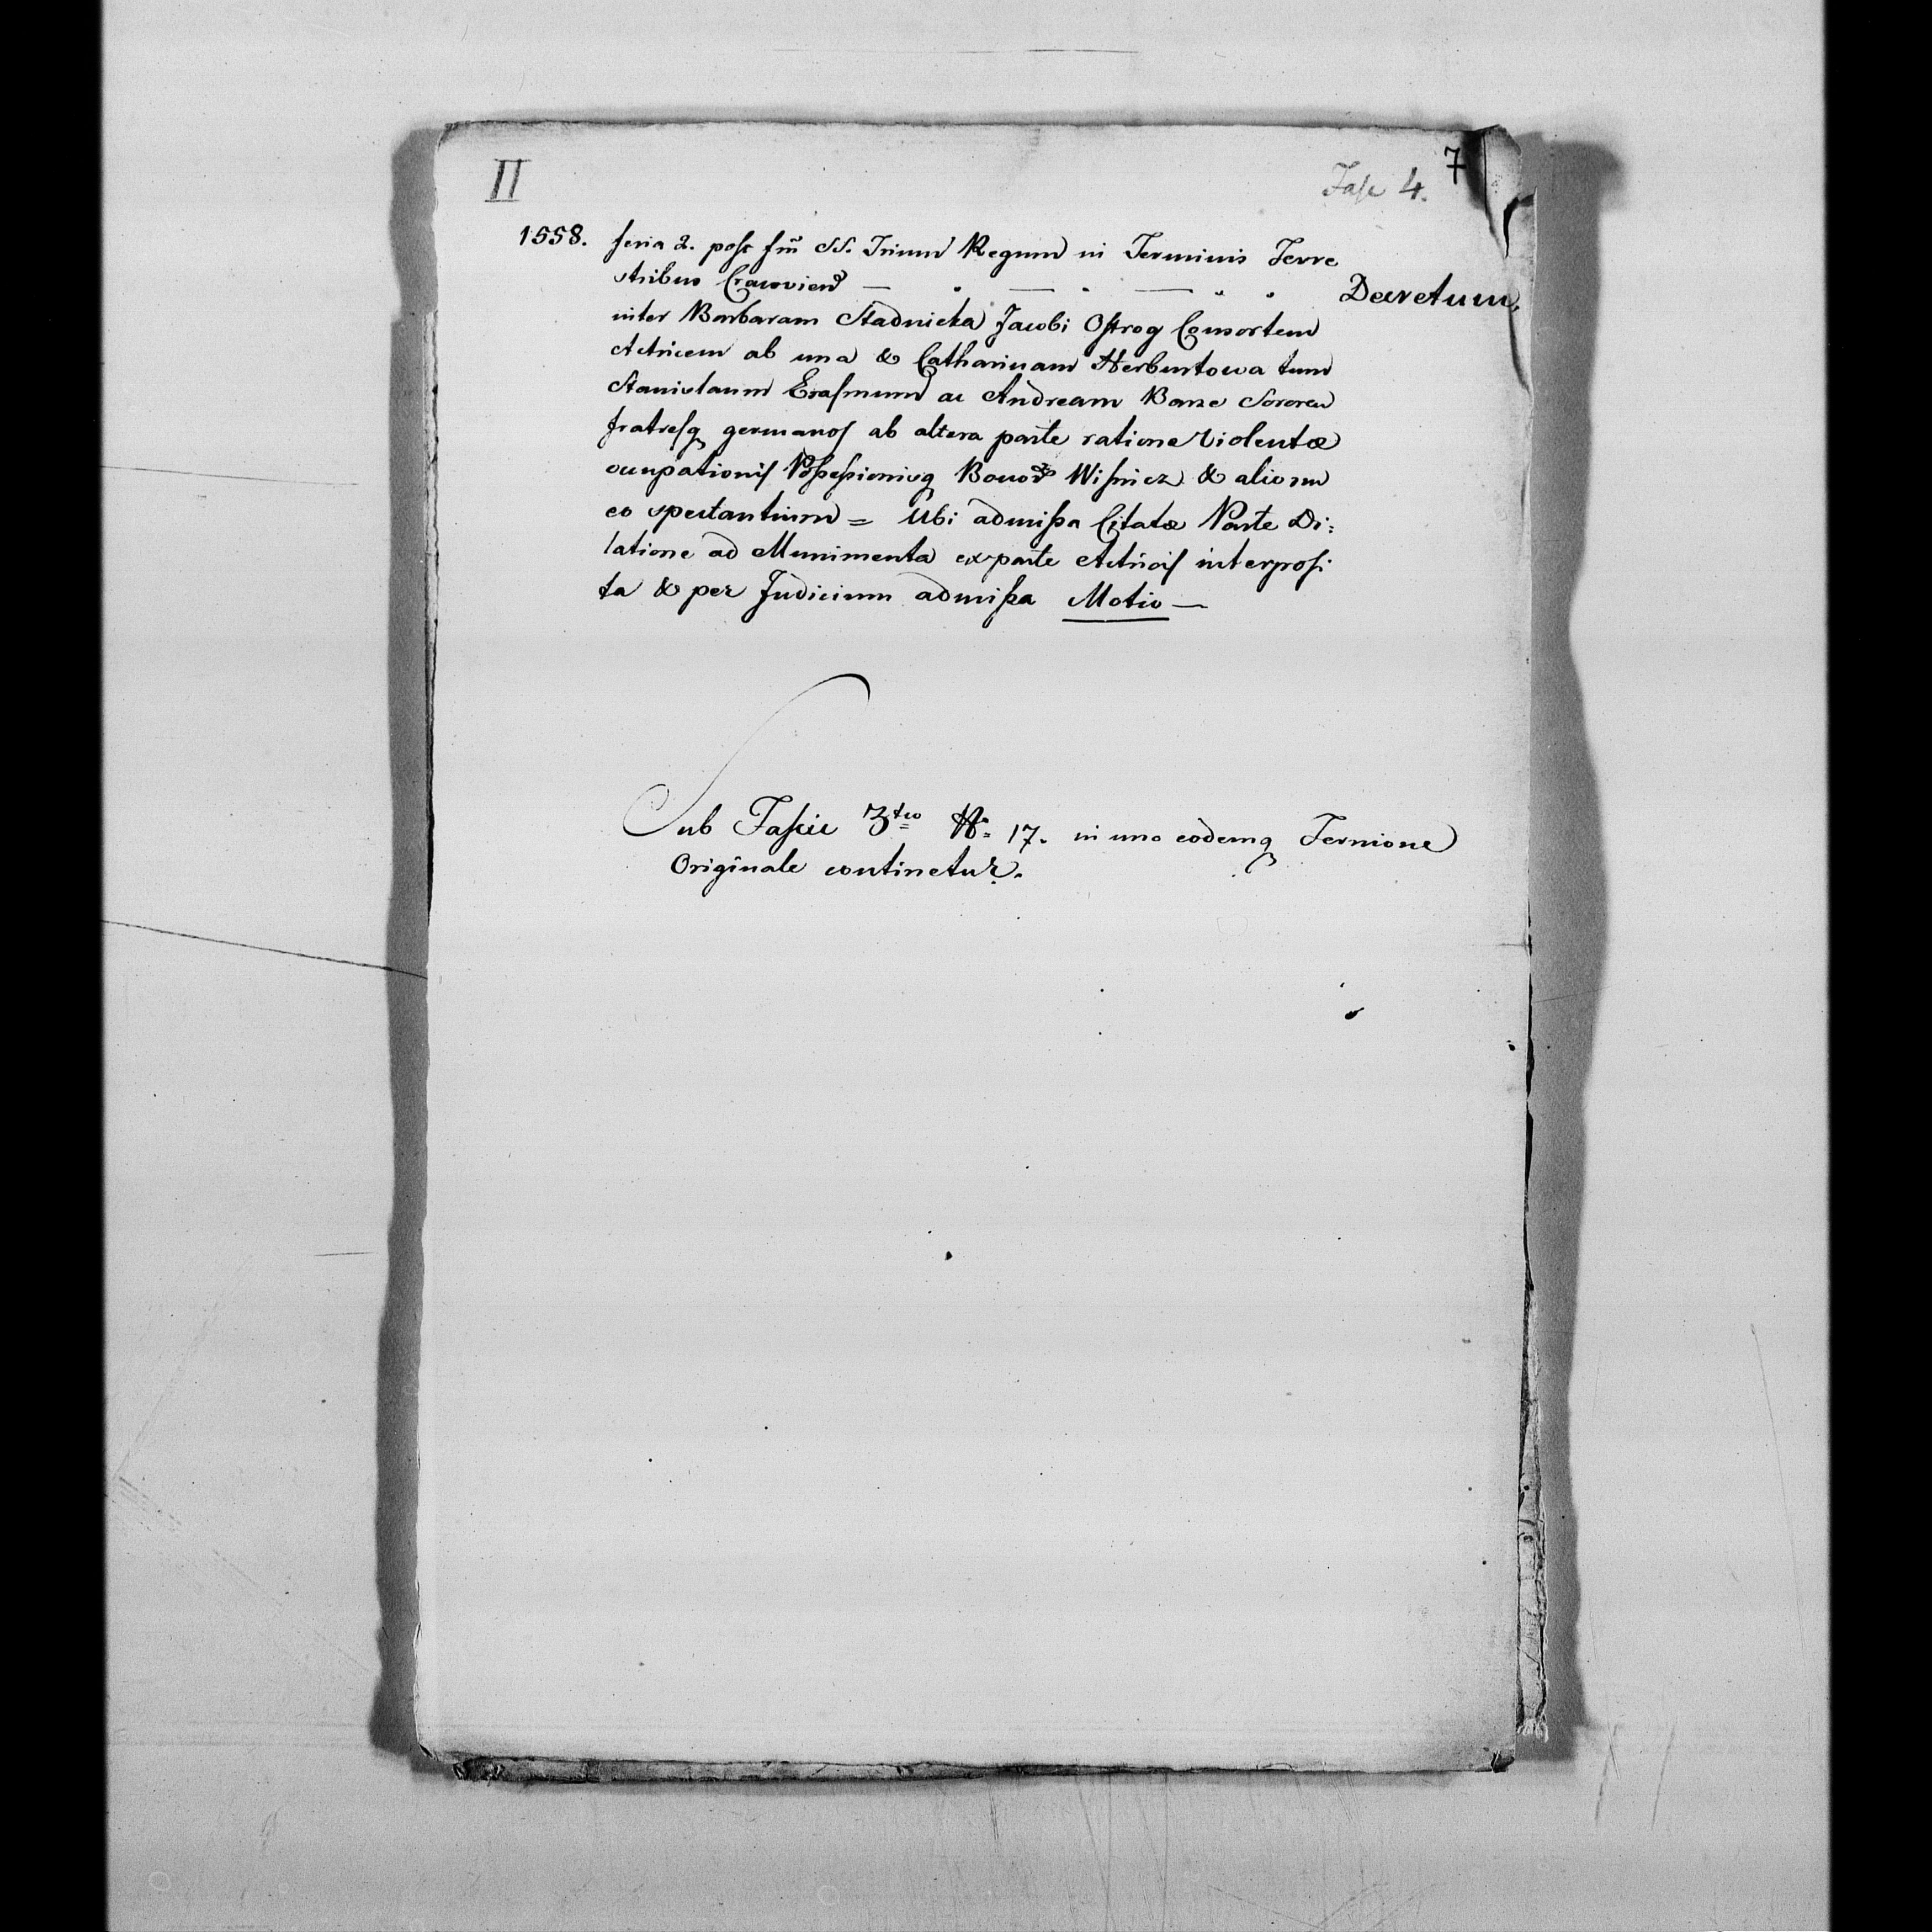 II
Fasc 4. 7
1558. feria 2. post fm̃ SS. Trium Regum in Terminis Terre
stribus Cracovien — " — " — " " Decretum,
inter Barbaram Stadnicka Jacobi Ostrog Consortem
Actricem ab una & Catharinam Herburtowa tum
Stanislaum Erasmum ac Andream Bone Sororem
fratresq germanos ab altera parte ratione violentæ
occupationis Possessionisq Bonor Wisnicz & aliorum
eo spectantium = Ubi admissa Citatæ Parte Di:
latione ad Munimenta ex parte Actricis interposi
ta & per Judicium admissa Motio —
Sub Fascic 3tio No 17. in uno eodemq Ternione
Originale continetur.